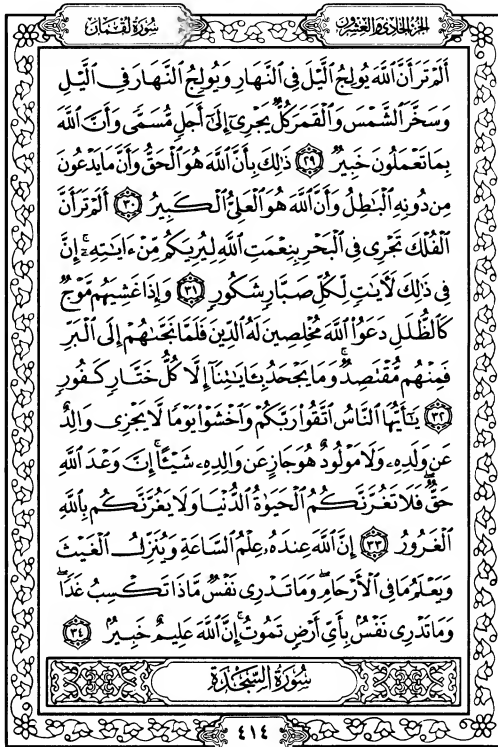 سُورَةُ لُقْمَانَ
الجُزْءُ الحَادِي وَالعِشْرُونَ
أَلَمْ تَرَ أَنَّ ٱللَّهَ يُولِجُ ٱلَّيْلَ فِي ٱلنَّهَارِ وَيُولِجُ ٱلنَّهَارَ فِي ٱلَّيْلِ
وَسَخَّرَ ٱلشَّمْسَ وَٱلْقَمَرَ كُلٌّ يَجْرِىٓ إِلَىٰٓ أَجَلٍ مُّسَمًّى وَأَنَّ ٱللَّهَ
بِمَا تَعْمَلُونَ خَبِيرٌ ٢٩ ذَٰلِكَ بِأَنَّ ٱللَّهَ هُوَ ٱلْحَقُّ وَأَنَّ مَا يَدْعُونَ
مِن دُونِهِ ٱلْبَٰطِلُ وَأَنَّ ٱللَّهَ هُوَ ٱلْعَلِىُّ ٱلْكَبِيرُ ٣٠ أَلَمْ تَرَ أَنَّ
ٱلْفُلْكَ تَجْرِى فِي ٱلْبَحْرِ بِنِعْمَتِ ٱللَّهِ لِيُرِيَكُم مِّنْ ءَايَٰتِهِۦٓ ۚ إِنَّ
فِي ذَٰلِكَ لَأَيَٰتٍ لِّكُلِّ صَبَّارٍ شَكُورٍ ٣١ وَإِذَا غَشِيَهُم مَّوْجٌ
كَٱلظُّلَلِ دَعَوُا۟ ٱللَّهَ مُخْلِصِينَ لَهُ ٱلدِّينَ فَلَمَّا نَجَّىٰهُمْ إِلَى ٱلْبَرِّ
فَمِنْهُم مُّقْتَصِدٌ ۚ وَمَا يَجْحَدُ بِـَٔايَٰتِنَآ إِلَّا كُلُّ خَتَّارٍ كَفُورٍ
٣٢ يَٰٓأَيُّهَا ٱلنَّاسُ ٱتَّقُوا۟ رَبَّكُمْ وَٱخْشَوْا۟ يَوْمًا لَّا يَجْزِى وَالِدٌ
عَن وَلَدِهِۦ وَلَا مَوْلُودٌ هُوَ جَازٍ عَن وَالِدِهِۦ شَيْـًٔا ۚ إِنَّ وَعْدَ ٱللَّهِ
حَقٌّ ۖ فَلَا تَغُرَّنَّكُمُ ٱلْحَيَوٰةُ ٱلدُّنْيَا وَلَا يَغُرَّنَّكُم بِٱللَّهِ
ٱلْغَرُورُ ٣٣ إِنَّ ٱللَّهَ عِندَهُۥ عِلْمُ ٱلسَّاعَةِ وَيُنَزِّلُ ٱلْغَيْثَ
وَيَعْلَمُ مَا فِي ٱلْأَرْحَامِ ۖ وَمَا تَدْرِى نَفْسٌ مَّاذَا تَكْسِبُ غَدًا ۖ
وَمَا تَدْرِى نَفْسٌۢ بِأَىِّ أَرْضٍ تَمُوتُ ۚ إِنَّ ٱللَّهَ عَلِيمٌ خَبِيرٌۢ ٣٤
سُورَةُ السَّجْدَةِ
٤١٤